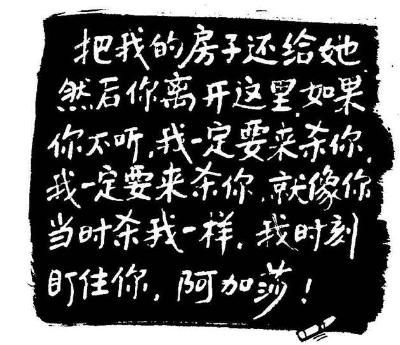 把我的房子还给她
然后你离开这里.如果
你不听,我一定要来杀你,
我一定要来杀你,就像你
当时杀我一样,我时刻
盯住你,阿加莎!